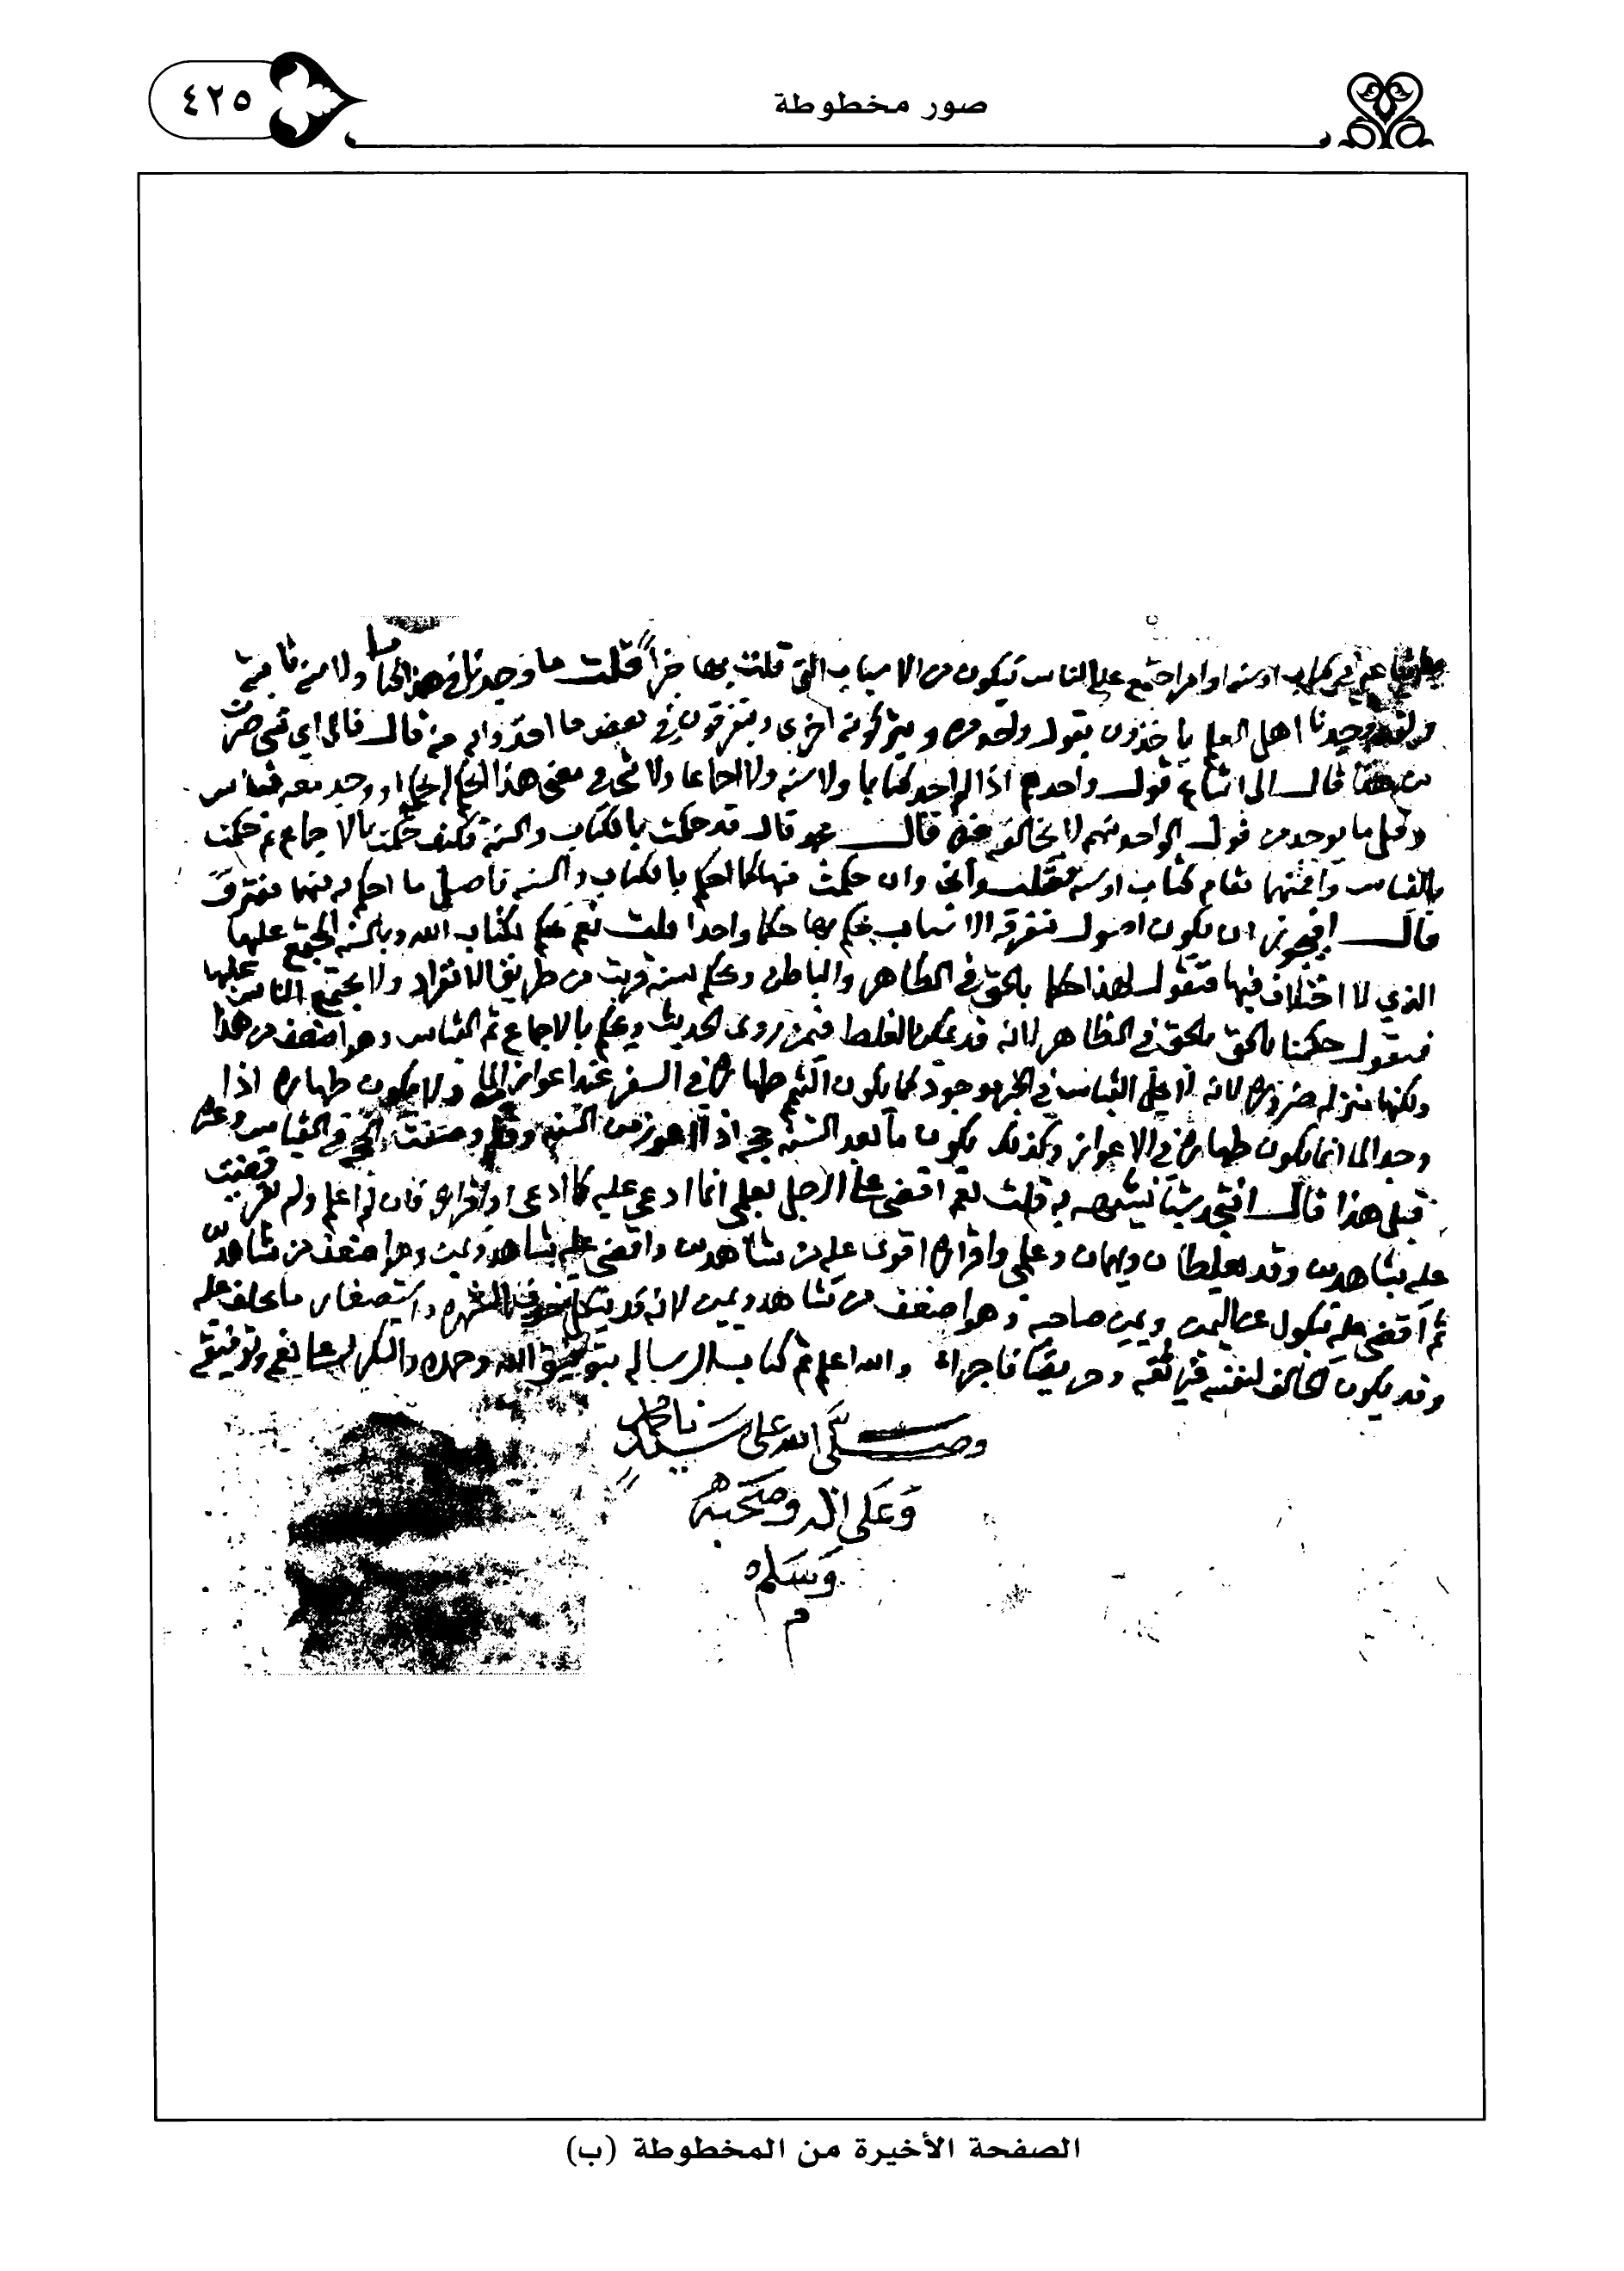 صور مخطوطة
٤٢٥
الناس تكون من الاسباب التي قلت بها خبراً قلت ما وجدنا في هذا كتابا ولا سنة ثابتة
ولقد وجدنا اهل العلم ياخذون بقول واحدهم مره ويتركونه اخرى ويتفرقون في بعض ما اخذوا به منهم قال فالى اي شي صرت
من هذا قال الى اتباع قول واحدهم اذا لم اجد كتابا ولا سنه ولا اجماعا ولا شي في معنى هذا يحكم او وجد معه قياس
وقل ما يوجد من قول الواحد منهم لا يخالفه غيره قال فقد حكمت بالكتاب والسنة فكيف حكمت بالاجماع ثم حكمت
بالقياس واقمتهما مقام كتاب او سنه فقلت واني وان حكمت بها كما احكم بالكتاب والسنه فاصل ما احكم به منهما مفترق
قال افيجوز ان يكون اصول مفرقه الاسباب يحكم بها حكما واحدا قلت نعم يحكم بكتاب الله وبالسنه المجتمع عليها
الذي لا اختلاف فيها فنقول لهذا حكما بالحق في الظاهر والباطن ويحكم بسنه رويت من طريق الانفراد ولا يجتمع الناس عليها
فنقول حكمنا بالحق في الظاهر لانه قد يمكن الغلط فيمن روى الحديث ويحكم بالاجماع ثم القياس وهو اضعف من هذا
ولكنها منزله ضروره لانه لا يحل القياس والخبر موجود كما يكون التيمم طهاره في السفر عند اعواز الما ولا يكون طهاره اذا
وجد الما انما يكون طهاره في الاعواز وكذلك يكون ما بعد السنه حجه اذا اعوز من السنه وقد وصفت الحجه في القياس وغيره
قبل هذا قال افتجد شيئا تشبهه به قلت نعم اقضى على الرجل بعلمي انما ادعي عليه كما ادعى او اقراره فان لم اعلم ولم يقر قضيت
عليه بشاهدين وقد يغلطان ويهمان وعلمي واقراره اقوى عليه من شاهدين واقضي عليه بشاهد ويمين وهو اضعف من شاهدين
ثم اقضي عليه بنكوله عن اليمين ويمين صاحبه وهو اضعف من شاهد ويمين لانه قد ينكل خوف الشهره واستصغار ما يحلف عليه
وقد يكون الحالف لنفسه غير ثقه وحريصا فاجرا والله اعلم تم كتاب الرساله بتوفيق الله وحده والشكر له على نعمه وتوفيقه
وصلى الله على سيدنا محمد
وعلى اله وصحبه
وسلم
م
الصفحة الأخيرة من المخطوطة (ب)